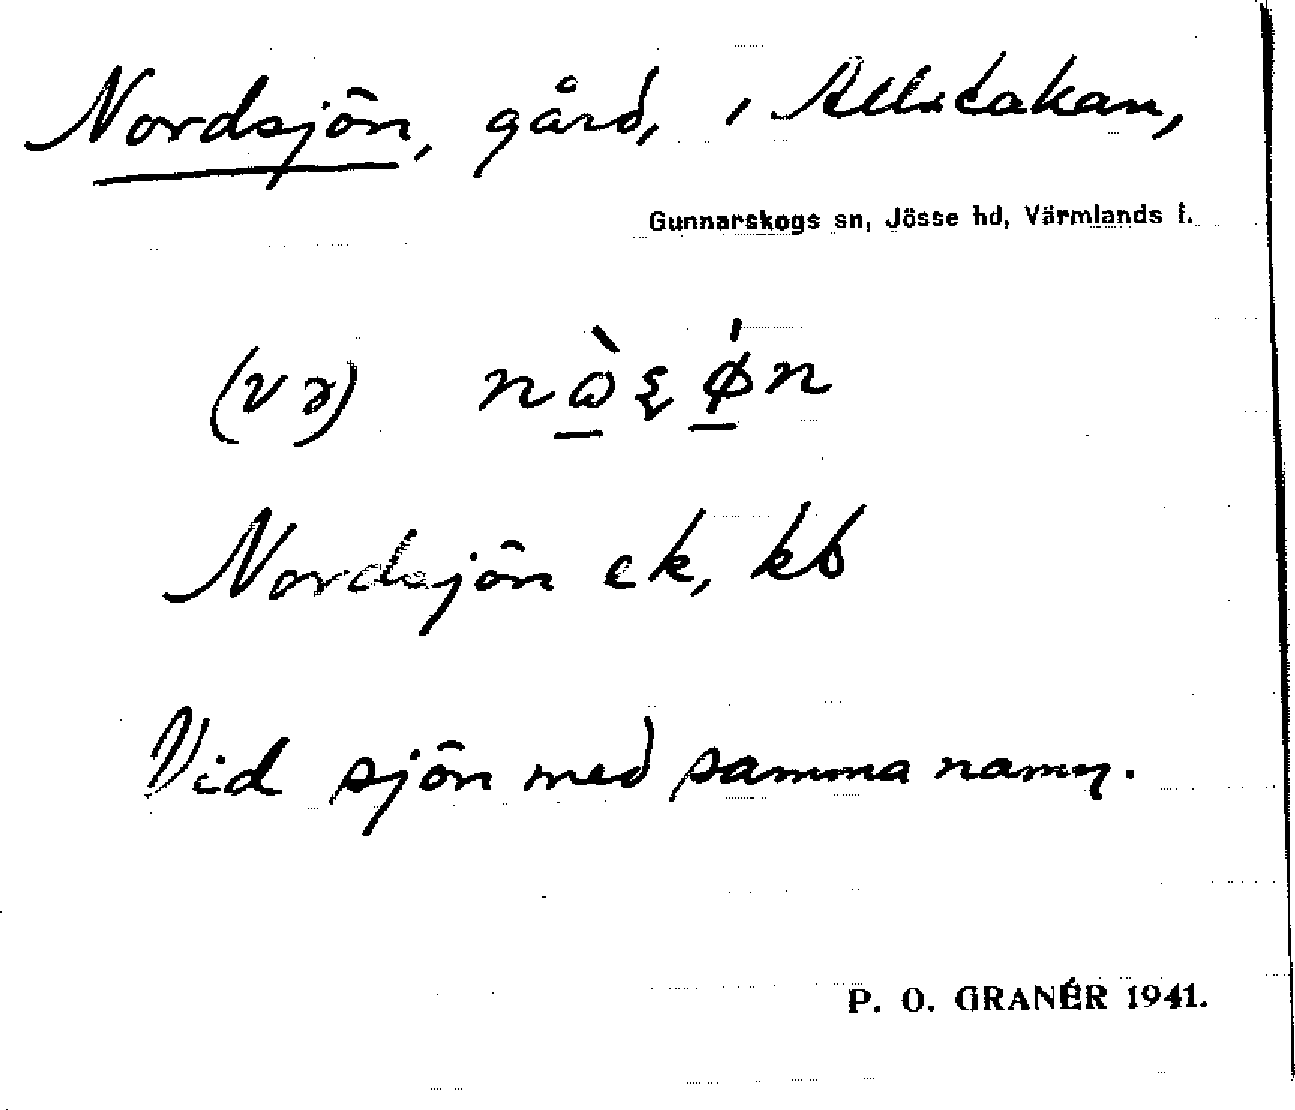 Nordsjön, gård, i Allstakan,
Gunnarskogs sn, Jösse hd, Värmlands l.
(va)
Nordsjön ek, kb
Vid sjön med samma namn.
P. O. GRANÉR 1941.